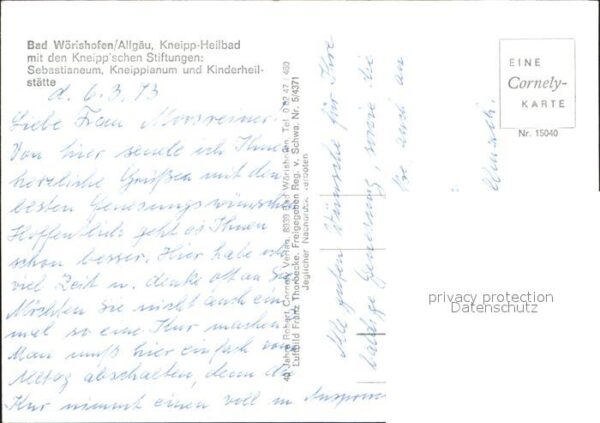 Bad Wörishofen/Allgäu, Kneipp-Heilbad
mit den Kneipp'schen Stiftungen:
Sebastianeum, Kneippianum und Kinderheil-
stätte
d. 6.3.73
Liebe Frau
Von hier sende ich Ihnen
herzliche Grüßen mit den
besten Genesungswünschen
Hoffentlich geht es Ihnen
schon besser. Hier habe ich
viel Zeit u. denke oft an Sie
Möchten Sie nicht auch ein
mal so eine Kur machen
Man muß hier einfach vom
Alltag abschalten, denn die
Kur nimmt einen voll in Anspruch
40 Jahre Robert Cornely Verlag, 8939 Bad Wörishofen, Tel. 0 82 47 / 460
Luftbild Franz Thorbecke, Freigegeben Reg. v. Schwa. Nr. 5/4371
Jeglicher Nachdruck verboten
Alle guten Wünsche für Ihre
baldige Genesung sowie die
auch an
EINE
Cornely-
KARTE
Nr. 15040
privacy protection
Datenschutz